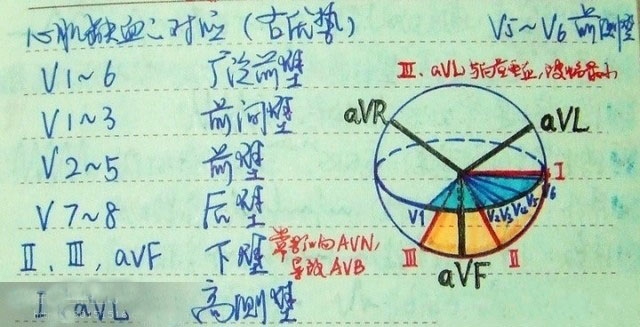 心肌缺血之对应(右优势)
V5~V6 前侧壁
V1~6 广泛前壁
V1~3 前间壁
V2~5 前壁
V7~8 后壁
II、III、aVF 下壁
常影响AVN,
导致AVB
I aVL 高侧壁
III、aVL
aVR
aVL
I
V1
V2 V3 V4 V5 V6
III
aVF
II